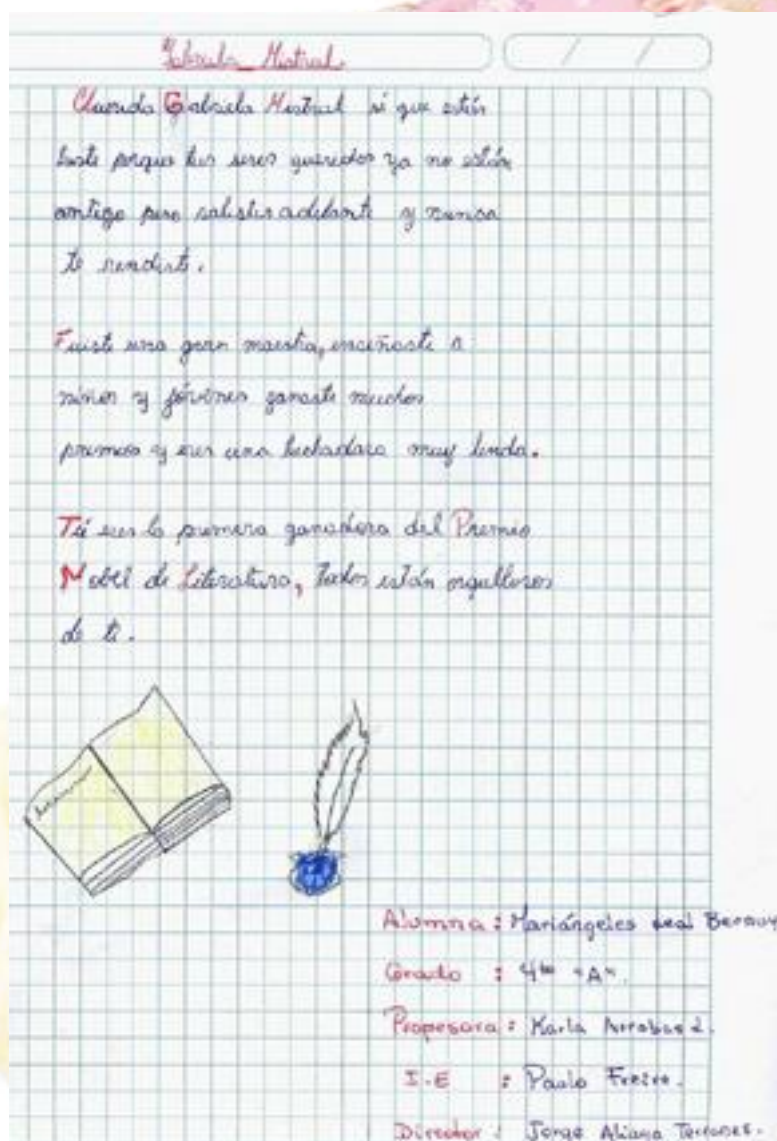 Gabriela Mistral
/ /
Querida Gabriela Mistral sé que estás
triste porque tus seres queridos ya no están
contigo pero saliste adelante y nunca
te rendiste.
Fuiste una gran maestra, enseñaste a
niños y jóvenes ganaste muchos
premios y eres una luchadora muy linda.
Tú eres la primera ganadora del Premio
Nobel de Literatura, Todos están orgullosos
de ti.
Alumna : Mariángeles Leal
Grado : 4to "A".
Profesora : Karla
I.E : Paulo Freire.
Director : Jorge Aliaga Terrones.